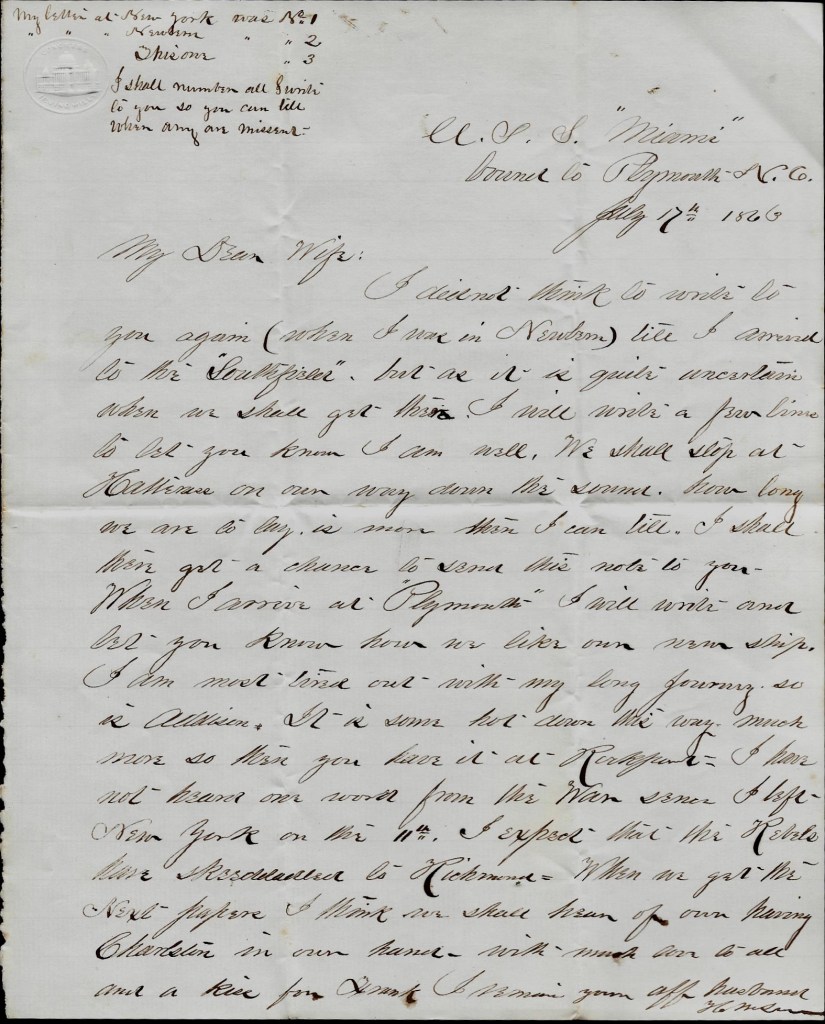 My letter at New York was No. 1
" " " Newbern " " 2
This one " 3
I shall number all I write
to you so you can till
when any are missent.
U. S. S. "Miami"
bound to Plymouth N. C.
July 17th 1863
My Dear Wife:
I did not think to write to
you again (when I was in Newbern) till I arrived
to the "Southfield". but as it is quite uncertain
when we shall get there. I will write a few lines
to let you know I am well. We shall stop at
Hatteras on our way down the sound. how long
we are to lay. is more then I can till. I shall
there get a chance to send this note to you
When I arrive at "Plymouth" I will write and
let you know how we like our new ship.
I am most tired out with my long journey. so
is Addison. It is some hot down this way. much
more so then you have it at Rockport = I have
not heard one word from the War sence I left
New York on the 11th. I expect that the Rebels
have skeddadled to Richmond = When we get the
Next papers I think we shall hear of our having
Charlston in our hand - with much love to all
and a kiss for Frank I remain your aff husband